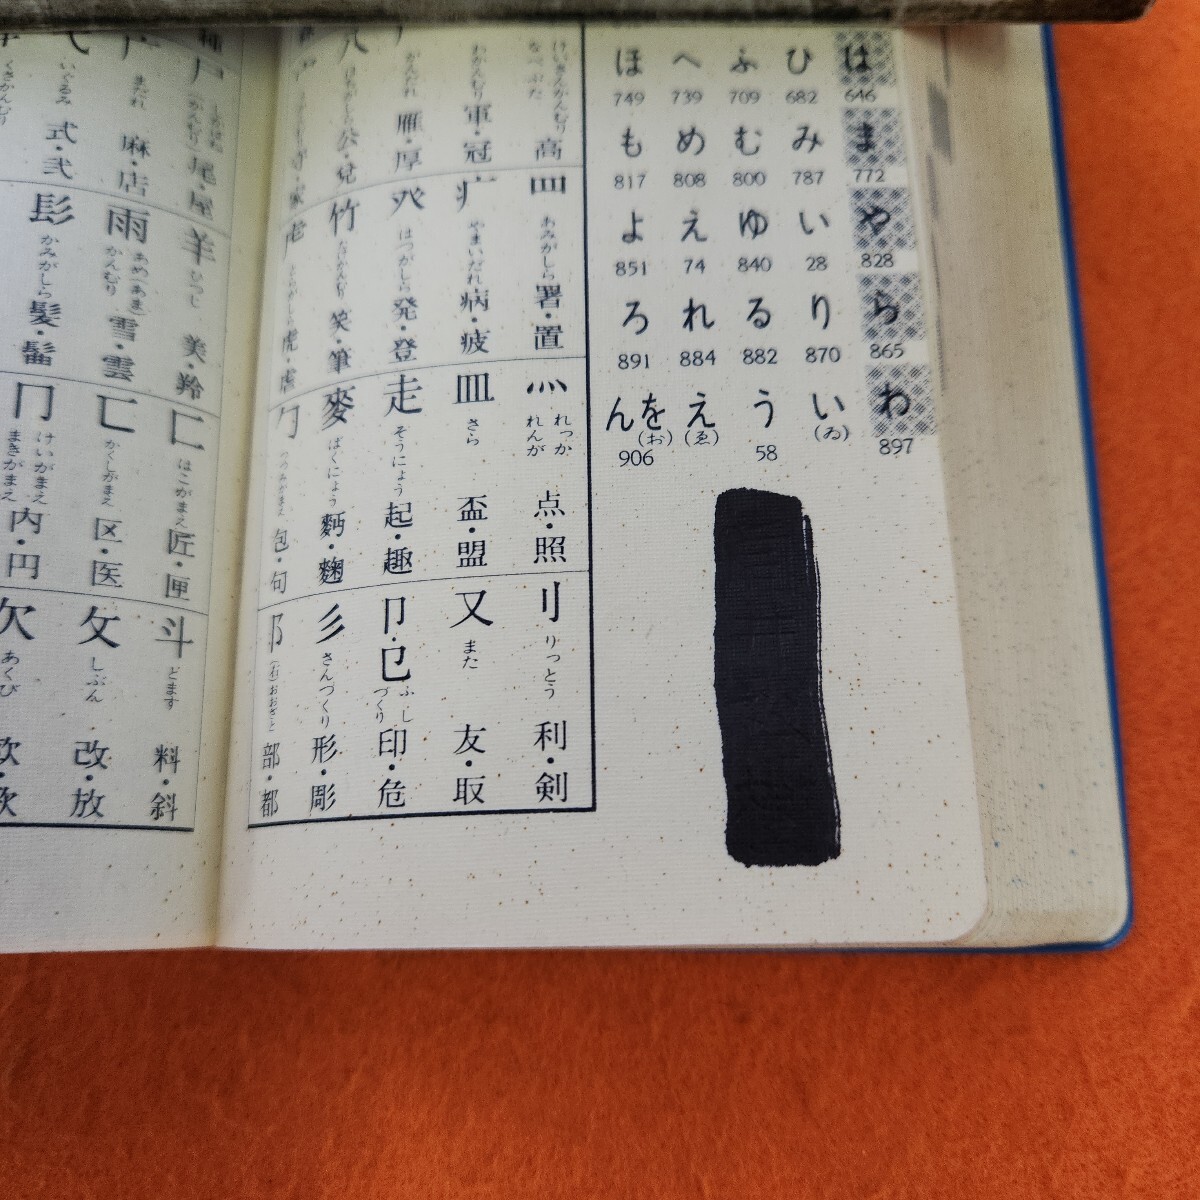 は ひ ふ へ ほ
646 682 709 739 749
ま み む め も
772 787 800 808 817
や い ゆ え よ
828 28 840 74 851
ら り る れ ろ
865 870 882 884 891
わ い う え をん
(ゐ) (ゑ) (お)
897 58 906
高
罒 あみがしら 署・置
灬 れっか れんが 点・照
刂 りっとう 利・剣
わかんむり 軍・冠
疒 やまいだれ 病・疲
皿 さら 盃・盟
又 また 友・取
がんだれ 雁・厚
癶 はつがしら 発・登
走 そうにょう 起・趣
卩・㔾 ふしづくり 印・危
八 はちがしら 公・兌
竹 たけかんむり 笑・筆
麥 ばくにょう 麪・麹
彡 さんづくり 形・彫
虎・虐
勹 つつみがまえ 包・句
阝 (右)おおざと 部・都
尸 尾・屋
羊 ひつじ 美・羚
匚 はこがまえ 匠・匣
斗 とます 料・斜
まだれ 麻・店
雨 あめ(あま) かんむり 雪・雲
匸 かくしがまえ 区・医
攵 しぶん 改・放
弋 いぐるみ 式・弐
髟 かみがしら 髪・髷
冂 けいがまえ まきがまえ 内・円
欠 あくび 欧・歌
くさかんむり